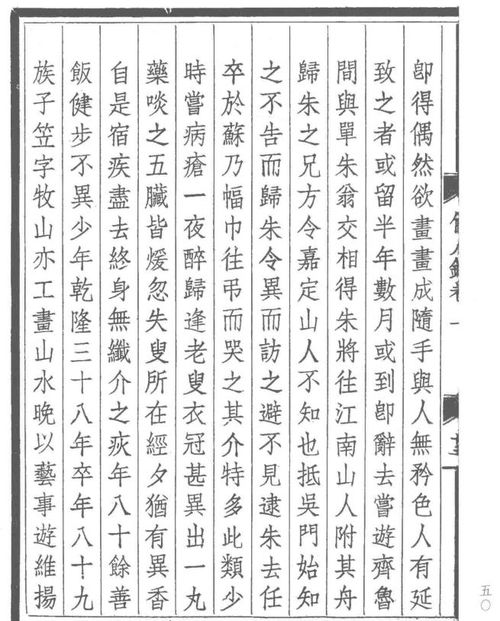 卽得偶然欲畫畫成隨手與人無矜色人有延
致之者或留半年數月或到卽辭去嘗遊齊魯
間與單朱翁交相得朱將往江南山人附其舟
歸朱之兄方令嘉定山人不知也抵吳門始知
之不告而歸朱令異而訪之避不見逮朱去任
卒於蘇乃幅巾往弔而哭之其介特多此類少
時嘗病瘡一夜醉歸逢老叟衣冠甚異出一丸
藥啖之五臟皆煖忽失叟所在經夕猶有異香
自是宿疾盡去終身無纖介之疢年八十餘善
飯健步不異少年乾隆三十八年卒年八十九
族子笠字牧山亦工畫山水晚以藝事遊維揚
五〇